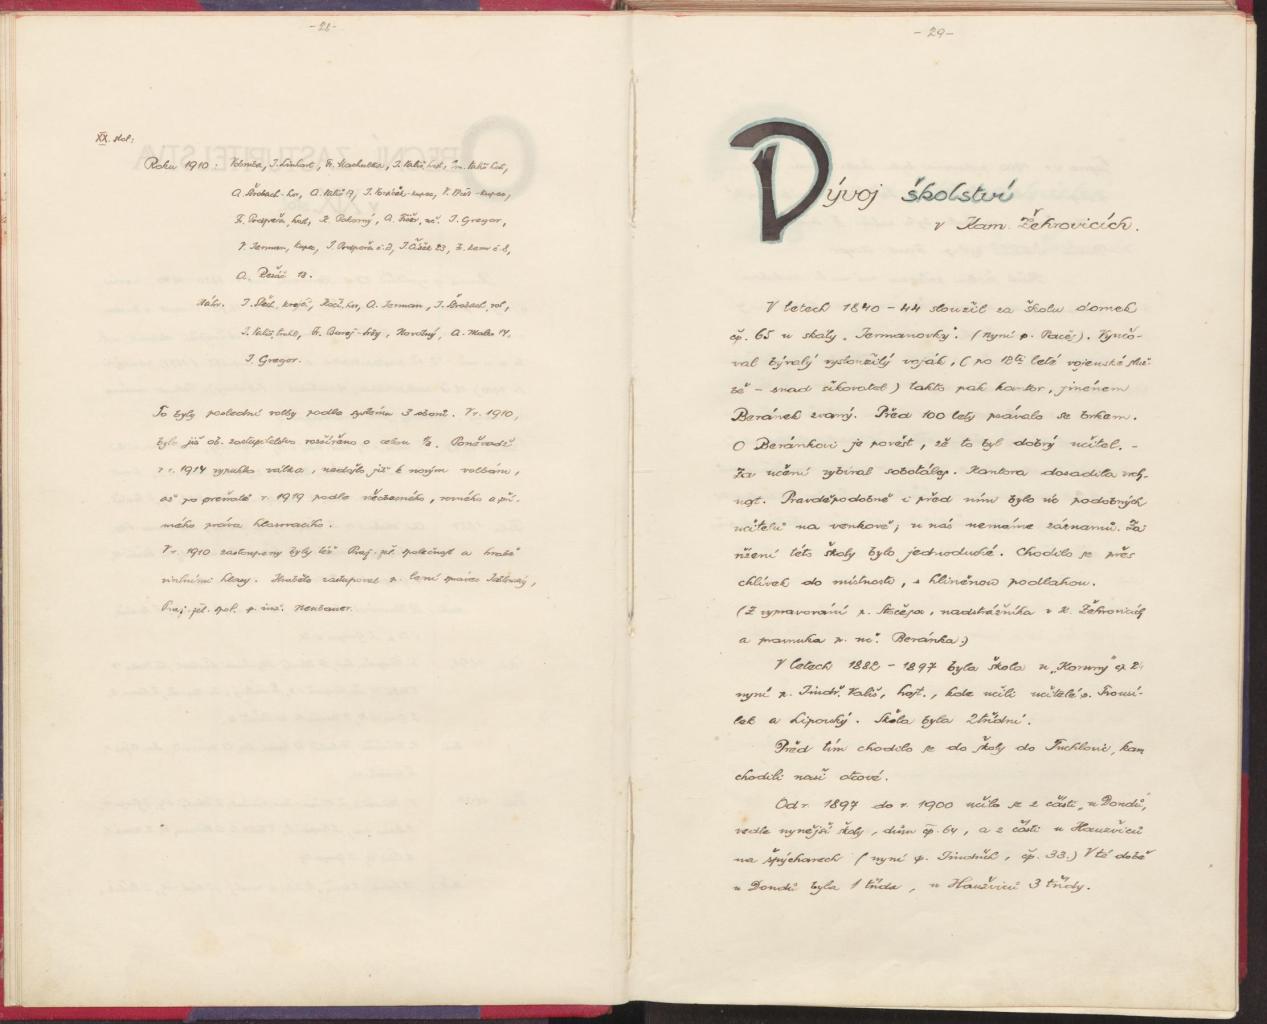 - 28 -
XX. stol:
Roku 1910 : J. Linhart, Fr. Machulka,
A. Šrobach - hor, A. Vališ 17, J. - kupec, - kupec,
Fr. Podpěra, host, Pokorný, A. J. Gregor,
Jerman, kupec, J. Podpěra č. J. Čížek 23,
A. 13.
Náhr. J. krejč, A. Jerman, J. Šrobach, rol,
J. Vališ, Fr. Novotný, A. Malec 14,
J. Gregor.
To byly poslední volby podle systému 3 sborů. V r. 1910,
bylo již ob. zastupitelstvo rozšířeno o celou ⅓. Poněvadž
v r. 1914 vypukla válka, nedošlo již k novým volbám,
až po převratě r. 1919 podle všeobecného, rovného a pří-
mého práva hlasovacího.
V r. 1910 zastoupeny byly též Praž. žel. společnost a hrabě
virilními hlasy. Hraběte zastupoval p. lesní správce
Praž. žel. spol. p. inž. Neubauer.
- 29 -
Vývoj školství
v Kam. Žehrovicích.
V letech 1840 - 44 sloužil za školu domek
čp. 65 u skály „Jermanovky". (nyní p. Pačes). Vyučo-
val bývalý vysloužilý voják, (po 12ti leté vojenské služ-
bě - snad šikovatel) takto pak kantor, jménem
Beránek zvaný. Před 100 lety psávalo se brkem.
O Beránkovi je pověst, že to byl dobrý učitel. -
Za učení vybíral sobotáles. Kantora dosadila vrch-
nost. Pravděpodobně i před ním bylo víc podobných
učitelů na venkově; u nás nemáme záznamů. Za-
řízení této školy bylo jednoduché. Chodilo se přes
chlívek do místnosti, s hliněnou podlahou.
(Z vypravování p. nadstrážníka v K. Žehrovicích
a pravnuka p. uč. Beránka.)
V letech 1882 - 1897 byla škola u „Koruny" čp 2
nyní p. Jindř. Vališ, host., kde učili učitelé p. Trousí-
lek a Lipovský. Škola byla 2třídní.
Před tím chodilo se do školy do Tuchlovic, kam
chodili naši otcové.
Od r. 1897 do r. 1900 učilo se z části „u Dondů",
vedle nynější školy, dům čp. 64, a z části u Hausviců
na špýcharech (nyní p. Jindřich, čp. 33.) V té době
u Dondů byla 1 třída, u Hausviců 3 třídy.